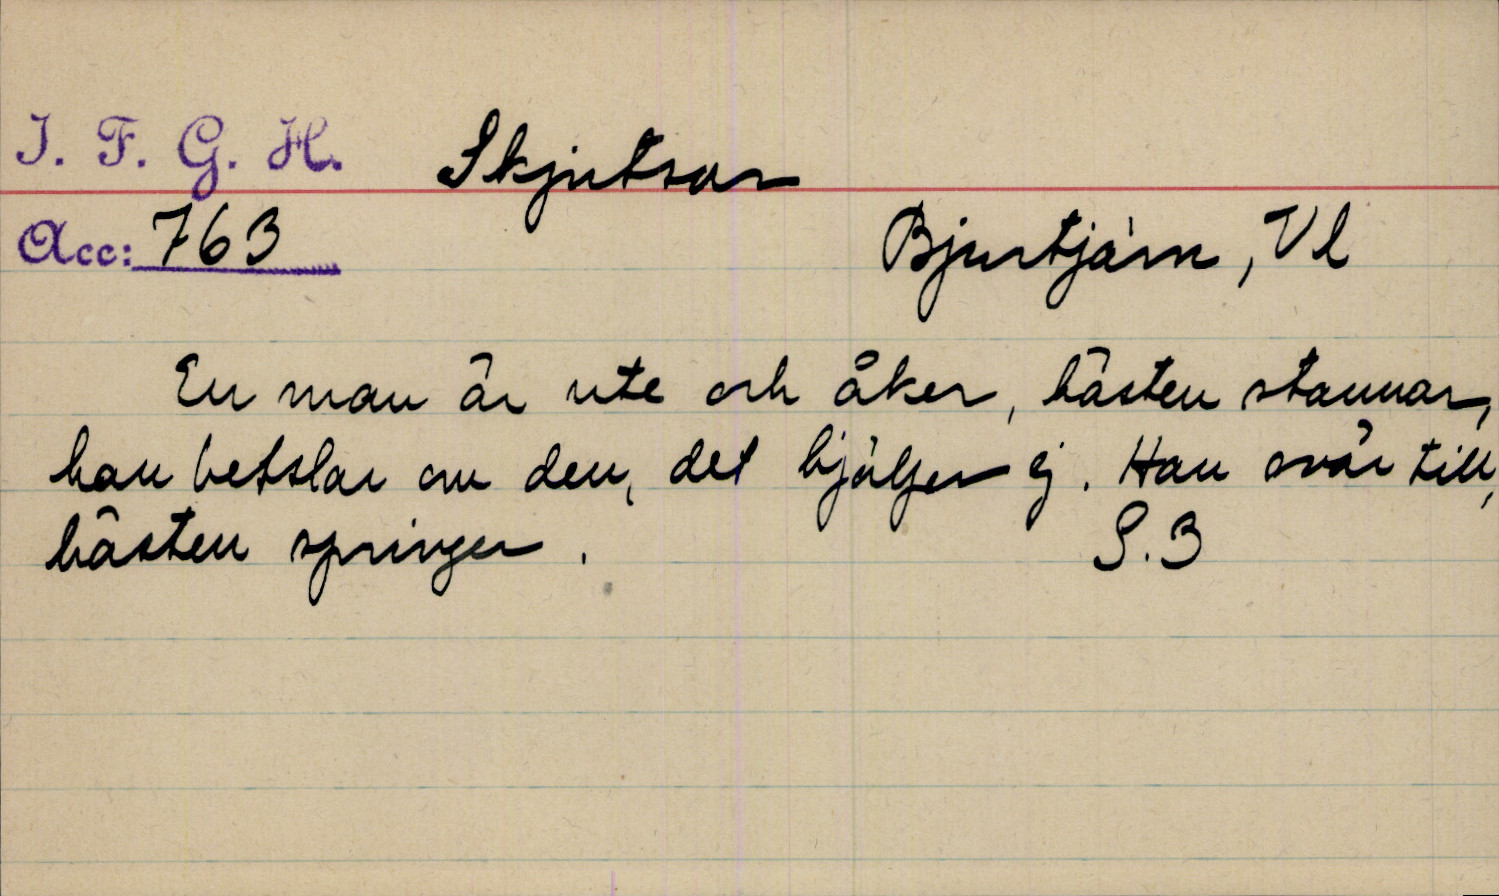 I. F. G. H. Skjutsar
Acc: 763
Bjurtjärn, Vl
En man är ute och åker, hästen stannar,
han betslar om den, det hjälper ej. Han svär till,
hästen springer. S. 3